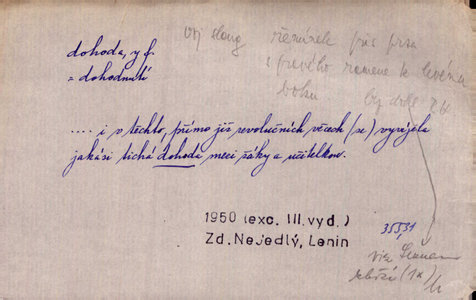 dohoda, y f.
= dohodnutí
voj slang řemínek přes prsa
s pravého ramene k levému
boku
.... i v těchto, přímo již revolučních věcech (se) vyvíjela
jakási tichá dohoda mezi žáky a učitelkou.
1950 (exc. III. vyd.)
Zd. Nejedlý, Lenin
355,31
viz